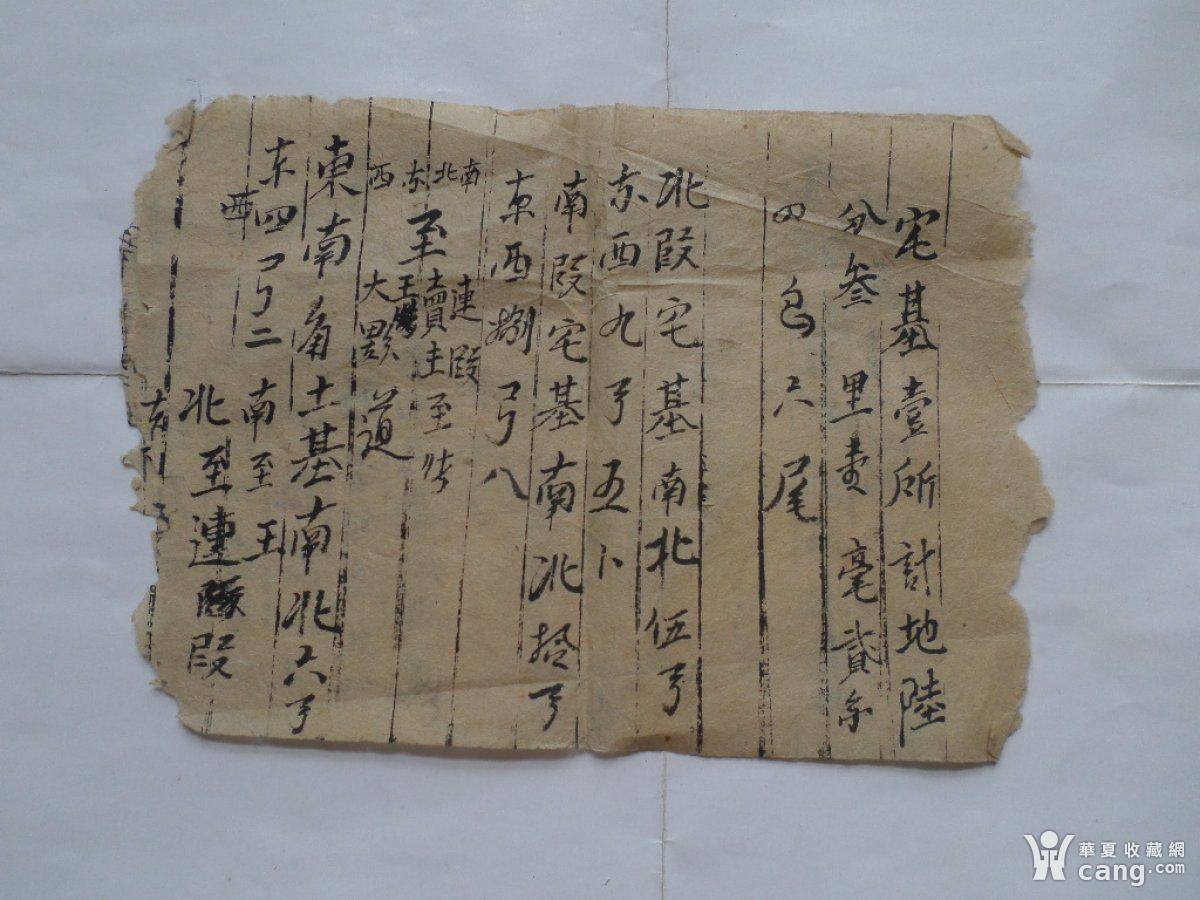 宅基壹所計地陸
分叁里壹毫貳糸
四忽六尾
北叚宅基南北伍弓
东西九弓五卜
南叚宅基南北拾弓
東西捌弓八
南北东西
至
連叚
賣主至
王
大道
東南角土基南北六弓
东西四弓二
南至王
北至連叚
華夏收藏網
cang.com